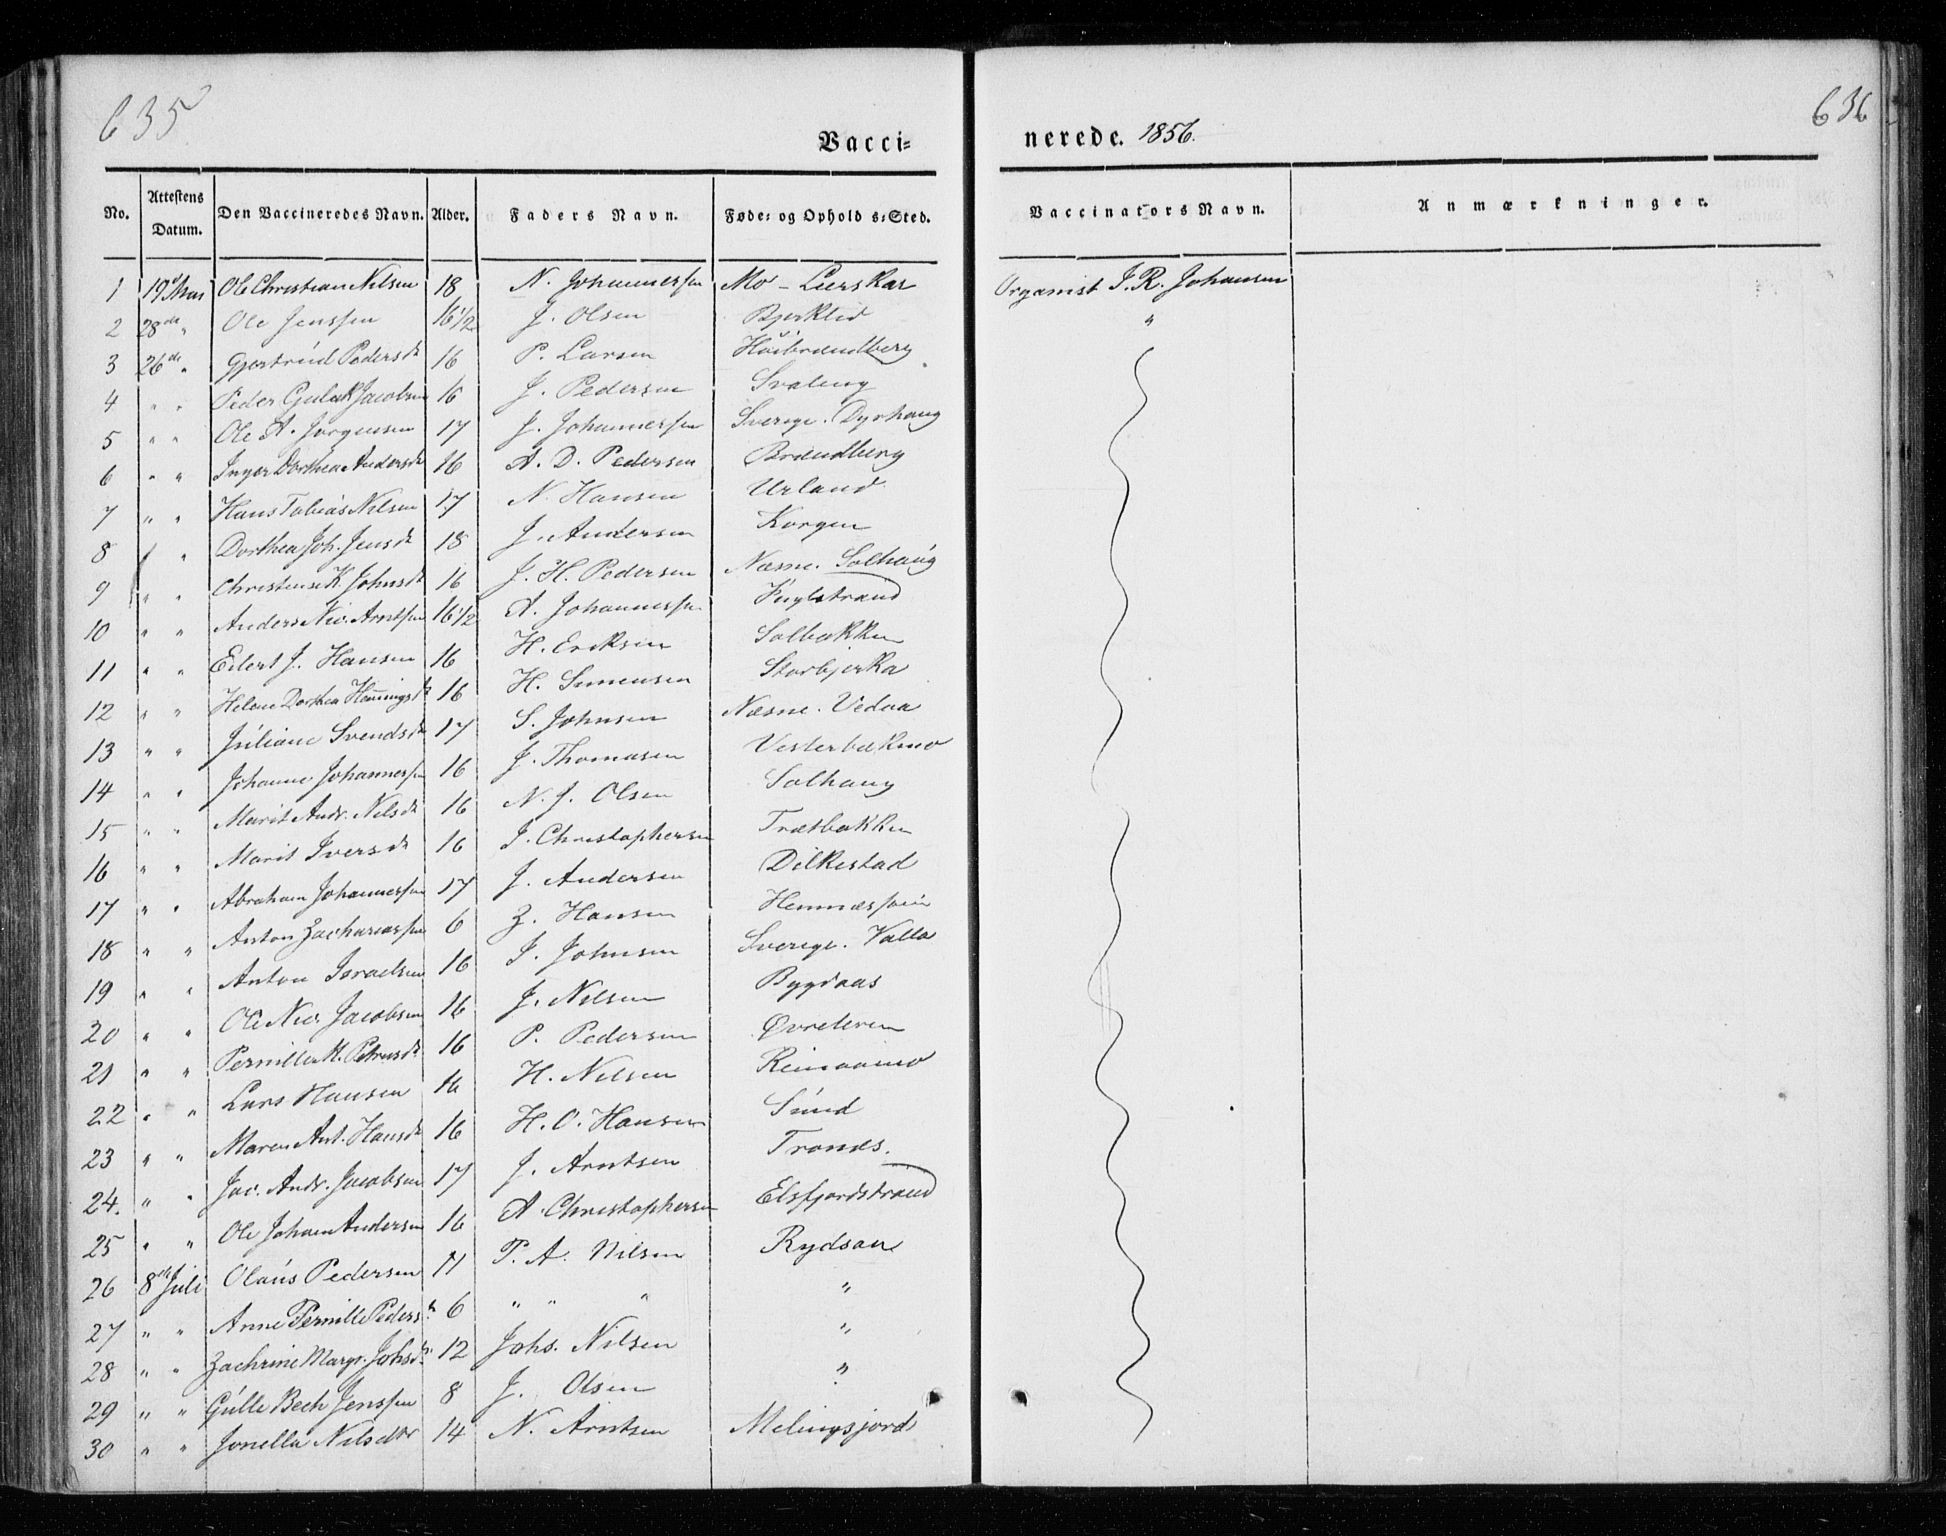 635
636
Vacci-
nerede. 1856.
No. Attestens Datum. Den Vaccineredes Navn. Alder. Faders Navn. Føde- og Opholds-Sted. Vaccinators Navn. Anmærkninger.
1 19d Mai Ole Christian Nilsen 18 N. Johannessen Mo - Lierskar Organist J. R. Johansen
2 28de " Ole Jenssen 16 1/2 J. Olsen Bjerklid "
3 26de " Gjertrud Pedersdr 16 P. Larsen Høibrændberg
4 " " Peder Gulak Jacobsen 16 J. Pedersen Svaleng
5 " " Ole A. Jørgensen 17 J. Johannessen Sverige. Dyrhaug
6 " " Inger Dorthea Andersdr 16 A. D. Pedersen Brændberg
7 " " Hans Tobias Nilsen 17 N. Hansen Urland
8 " " Dorthea Joh. Jensdr 18 J. Andersen Korgen
9 " " Christense K. Johnsdr 16 J. H. Pedersen Næsne. Solhaug
10 " " Anders Nic. Arntsen 16 1/2 A. Johannessen Fuglstrand
11 " " Eilert J. Hansen 16 H. Eriksen Solbakken
12 " " Helene Dorthea Henningsdr 16 H. Simensen Storbjerka
13 " " Juliane Svendsdr 17 S. Johnsen Næsne. Vedaa
14 " " Johanne Johannessen 16 J. Thomasen Vesterbækmo
15 " " Marit Andr. Nilsdr 16 N. J. Olsen Solhaug
16 " " Marit Iversdr 16 I. Christophersen Trætbakken
17 " " Abraham Johannessen 17 J. Andersen Dilkestad
18 " " Anton Zachariassen 6 Z. Hansen
19 " " Anton Israelsen 16 I. Johnsen Sverige. Valla
20 " " Ole Nic. Jacobsen 16 J. Nilsen Bygdaas
21 " " Pernilla M. Petersdr 16 P. Pedersen Øvreleren
22 " " Lars Hansen 16 H. Nilsen Reinaamo
23 " " Maren Ant. Hansdr 16 H. O. Hansen Sund
24. " " Jac. Andr. Jacobsen 17 J. Arntsen Tronds.
25 " " Ole Johan Andersen 16 A. Christophersen Elsfjordstrand
26 8de Juli Olaus Pedersen 11 P. A. Nilsen Rydsaa
27 " " Anne Pernille Pedersdr 6 " " " "
28 " " Zachrine Margr. Johsdr 12 Johs. Nilsen "
29 " " Gulle Bech Jenssen 8 J. Olsen "
30 " " Jonella Nilsdtr 14 N. Arntsen Melingsjord